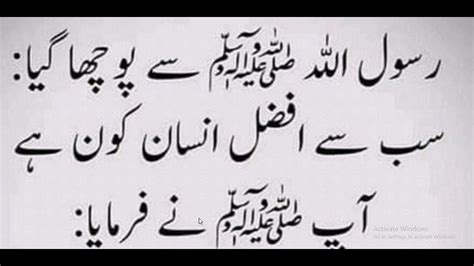 رسول اللہ ﷺ سے پوچھا گیا:
سب سے افضل انسان کون ہے
آپ ﷺ نے فرمایا:
Activate Windows
Go to Settings to activate Windows.